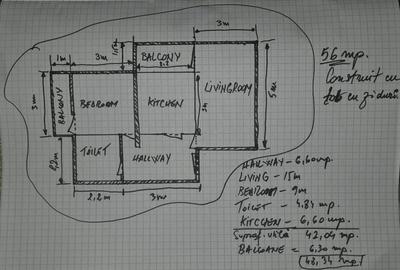 3m
1m
3m
1,5m
BALCONY
2,2
LIVINGROOM
5m
3m
BALCONY
BEDROOM
KITCHEN
3m
2,2m
TOILET
HALLWAY
2,2m
3m
56 mp.
Construit cu
tot cu ziduri.
HALLWAY - 6,60mp.
LIVING - 15m
BEDROOM - 9m
TOILET - 4.84mp.
KITCHEN - 6,60mp.
Supraf. utilă 42,04 mp.
BALCOANE = 6,30 mp.
48,34 mp